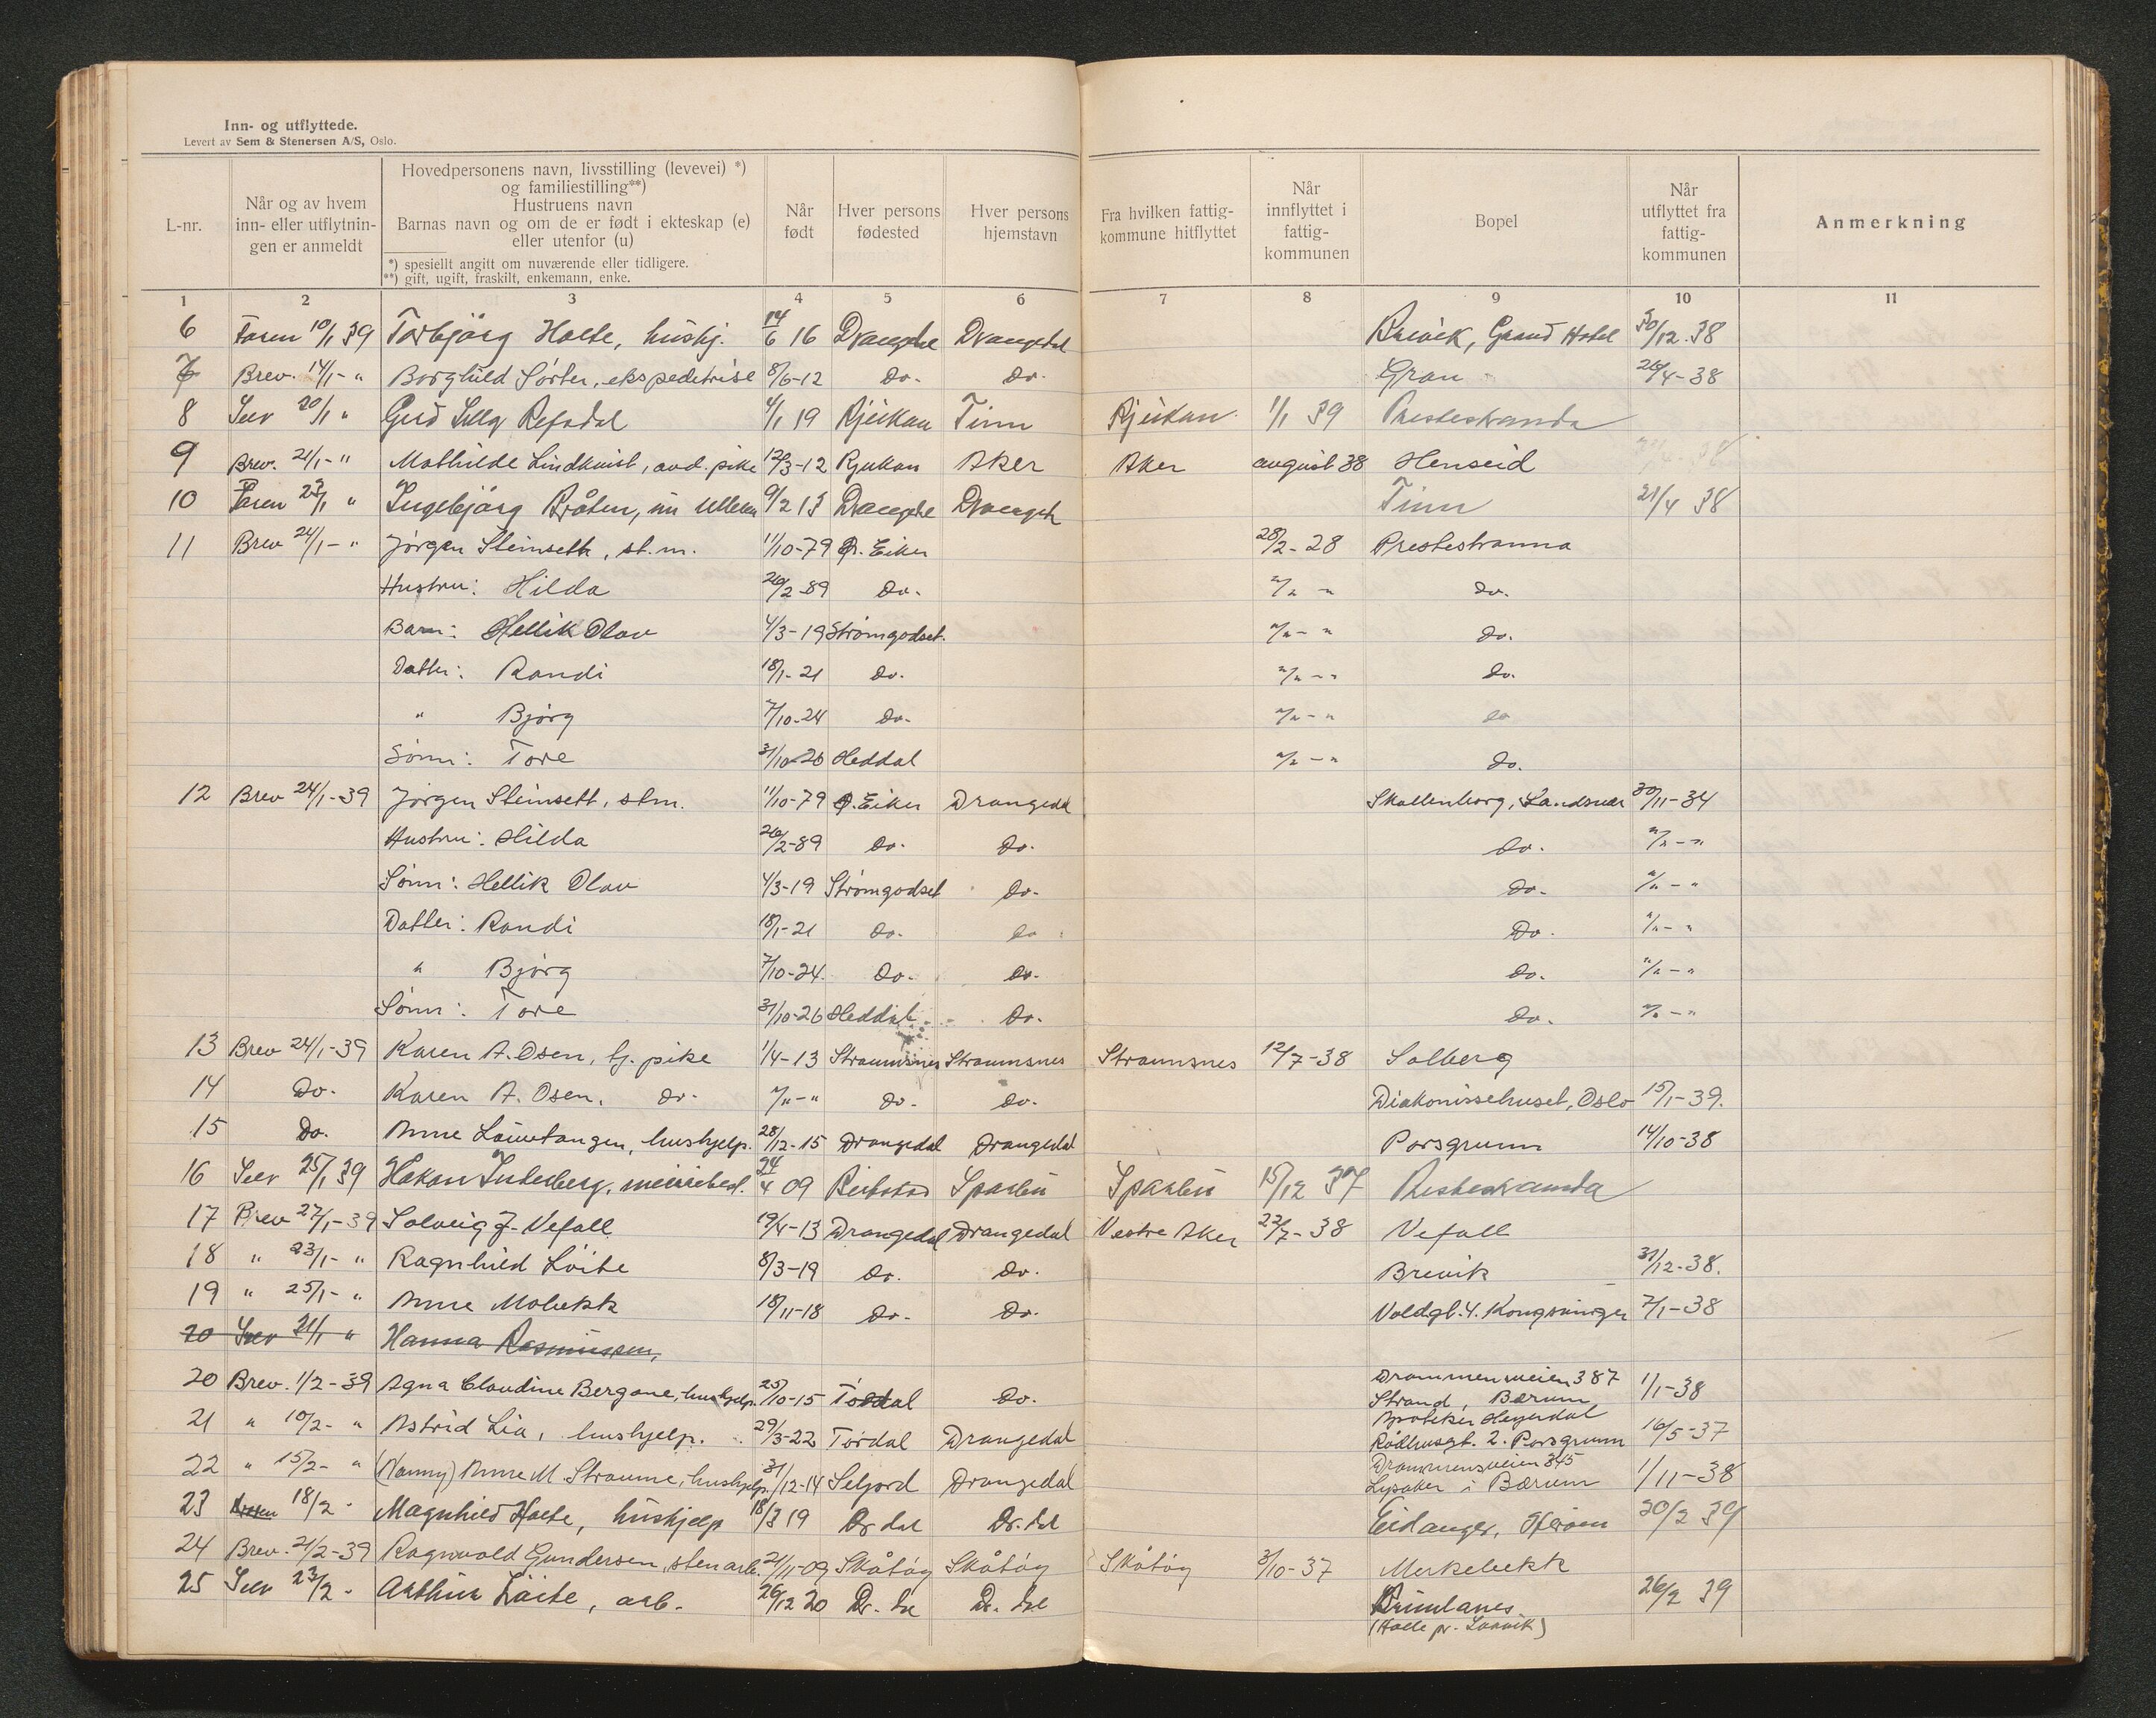 Inn- og utflyttede.
Levert av Sem & Stenersen A/S, Oslo.
L-nr.
Når og av hvem inn- eller utflytnin-gen er anmeldt
Hovedpersonens navn, livsstilling (levevei) *) og familiestilling**) Hustruens navn Barnas navn og om de er født i ekteskap (e) eller utenfor (u)
*) spesiellt angitt om nuværende eller tidligere.
**) gift, ugift, fraskilt, enkemann, enke.
Når født
Hver persons fødested
Hver persons hjemstavn
Fra hvilken fattig-kommune hitflyttet
Når innflyttet i fattig-kommunen
Bopel
Når utflyttet fra fattig-kommunen
Anmerkning
1 2 3 4 5 6 7 8 9 10 11
6 Faren 10/1 39 Torbjörg Holte, hushj. 14/6 16 Drangedal Drangedal Brevik, Grand Hotel 30/12.38
7 Brev. 14/1- " Borghild Sørter, ekspeditrise 8/6-12 do. do. Gran 26/4-38
8 Selv 20/1 " Gerd Refsdal 4/1 19 Rjukan Tinn Rjukan 1/1 39 Prestestranda
9 Brev. 21/1- " Mathilde Lindkvist, avd. pike 12/3-12 Rjukan Aker Aker august 38 Henseid
10 Faren 23/1 " Ingebjörg Bråten, 9/2 13 Drangedal Drangedal Tinn 21/4 38
11 Brev 24/1- " Jørgen Steinsett, st.m. 11/10-79 Ø. Eiker 28/2-28 Prestestranna
Hustru: Hilda 26/2-89 do. "/" - " do.
Barn: Hellik Olav 4/3-19 Strømgodset. "/" - " do.
Datter: Randi 18/1-21 do. "/" - " do.
" Bjørg 7/10-24 do. "/" - " do
Sønn: Tore 31/10-26 Heddal "/" - " do.
12 Brev 24/1-39 Jørgen Steinsett, stm. 11/10-79 Ø. Eiker Drangedal Skollenborg, Sandsvær 30/11-34
Hustru: Hilda 26/2-89 do. do. do. "/" - "
Sønn: Hellik Olav 4/3-19 Strømgodset do. do. "/" - "
Datter: Randi 18/1-21 do. do do. "/" - "
" Bjørg 7/10-24. do. do. do. "/" - "
Sønn: Tore 31/10-26 Heddal do. do. "/" - "
13 Brev 24/1-39 Karen A. Osen, tj. pike 1/4-13 Straumsnes Straumsnes Straumsnes 12/7-38 Solberg
14 Do. Karen A. Osen, do. "/" - " do. do. Diakonissehuset, Oslo 15/1-39.
15 Do. Anne Lauvtangen, hushjelp. 28/12-15 Drangedal Drangedal Porsgrunn 14/10-38
16 Selv 25/1 39 Håkon meieribed. 24/4 09 Sparbu Sparbu 15/12 37 Prestestranda
17 Brev 27/1-39 Solveig J. Vefall 19/4-13 Drangedal Drangedal Vestre Aker 22/7-38 Vefall
18 " 23/1- " Ragnhild Löite 8/3-19 do. do. Brevik 31/12-38.
19 " 25/1- " Anne Mobekk 18/11-18 do. do. Voldgt. 4. Kongsvinger 7/1-38
20 Selv 21/1 " Hanna Rasmussen,
20 Brev. 1/2-39 Agna Claudine Bergane, hushjelp. 25/10-15 Tørdal do. Drammensveien 387 Strand, Bærum 1/1-38
21 " 10/2- " Astrid Lia, hushjelp. 29/3-22 Tørdal Drangedal Apoteker Heyerdal Rådhusgt. 2. Porsgrunn 16/5-37
22 " 15/2- " (Nanny) Anne M. Straume, hushjelp. 31/12-14 Seljord Drangedal Drammensveien 345 Lysaker i Bærum 1/11-38
23 18/2 - Magnhild Holte, hushjelp 18/3 19 Dr.dal Dr.dal Eidanger, 20/2 39
24 Brev. 21/2-39 Ragnvald Gundersen, stenarb. 21/11-09 Skåtøy Skåtøy Skåtøy 3/10-37 Merkebekk
25 Selv 23/2 - Arthur Löite, arb. 26/12 20 Dr.dal Dr.dal Brunlanes 26/2 39
(Halle pr. Larvik)